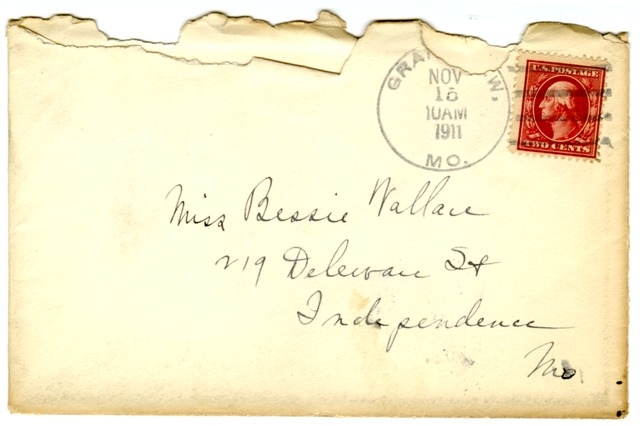 GRA W.
NOV
15
10AM
1911
MO.
U.S. POSTAGE
TWO CENTS
Miss Bessie Wallace
219 Delewan St
Independence
Mo